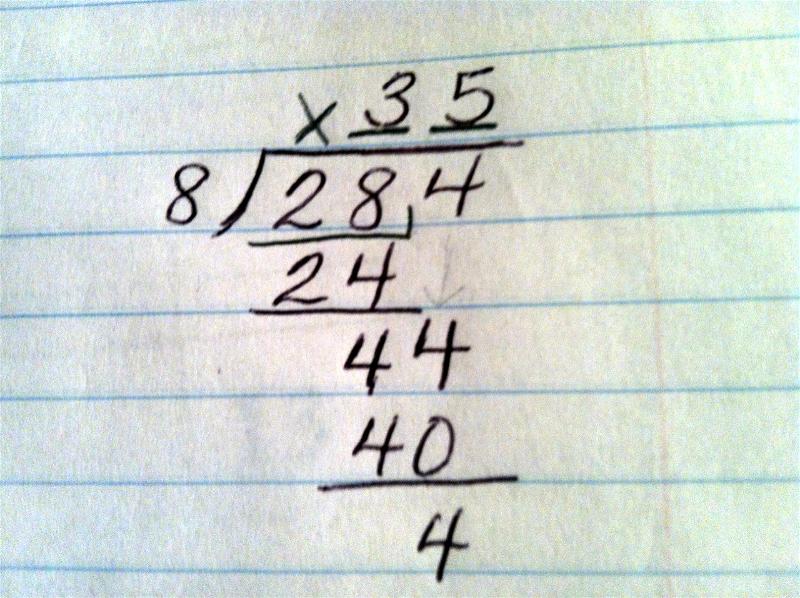 x 35
8 284
24
44
40
4